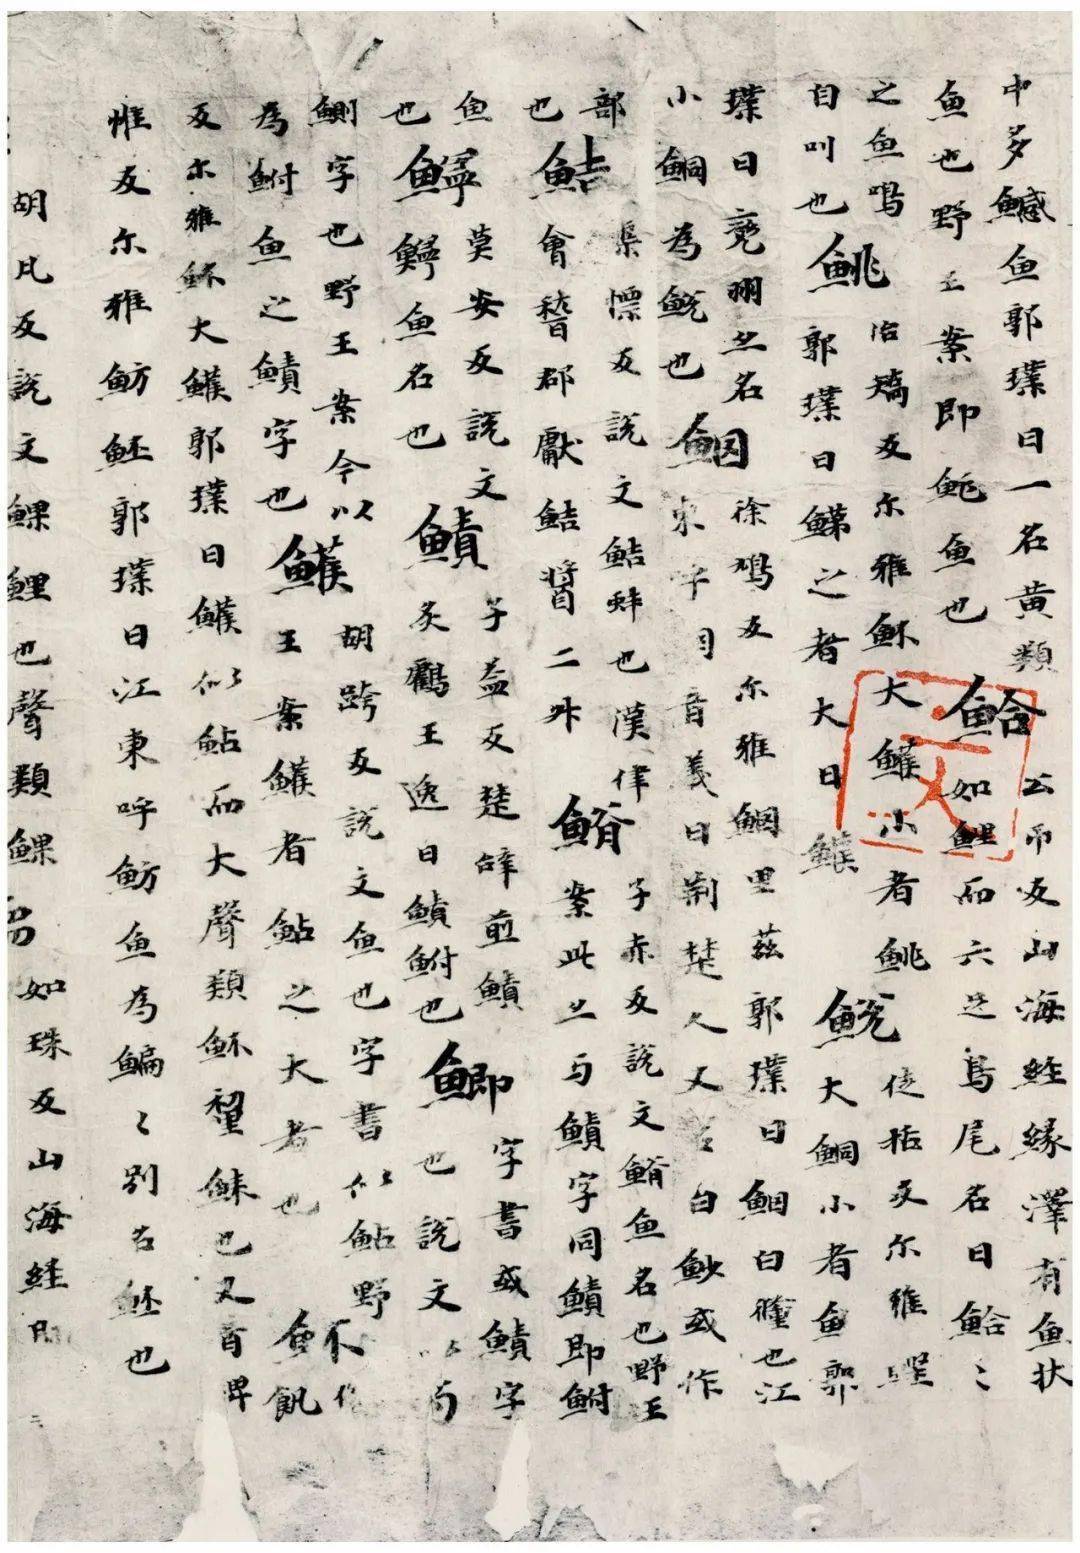 中多鱤魚郭璞曰一名黃頰
魚也野王案即鮡魚也
鮯
公帀反山海經緣澤有魚狀
如鯉而六足鳥尾名曰鮯〻
之魚鳴
自叫也
鮡
治矯反尔雅魾大鱯小者鮡
郭璞曰鱯之者大曰鱯
鮵
徒括反尔雅鱧
大鮦小者魚郭
璞曰亦名
小鮦為鮵也
鮂
徐鳩反尔雅鮂黑茲郭璞曰鮂白鰷也江
東字同音義曰荊楚人又名白魦或作
部
也
鮚
渠慄反說文鮚蚌也漢律
會稽郡獻鮚醬二升
䱞
子亦反說文䱞魚名也野王
案此亦与鰿字同鰿即鮒
魚
也
莫安反說文
魚名也
鰿
子益反楚辭煎鰿
炙鸖王逸曰鰿鮒也
鯽
字書或鰿字
也說文以為
鰂字也野王案今以
為鮒魚之鰿字也
鱯
胡跨反說文魚也字書似鮎野
王案鱯者鮎之大者也
魾
飢
反尔雅魾大鱯郭璞曰鱯似鮎而大聲類魾鮇也又音卑
惟反尔雅魴魾郭璞曰江東呼魴魚為鯿〻別名魾也
胡瓦反說文鯉也聲類
如珠反山海經